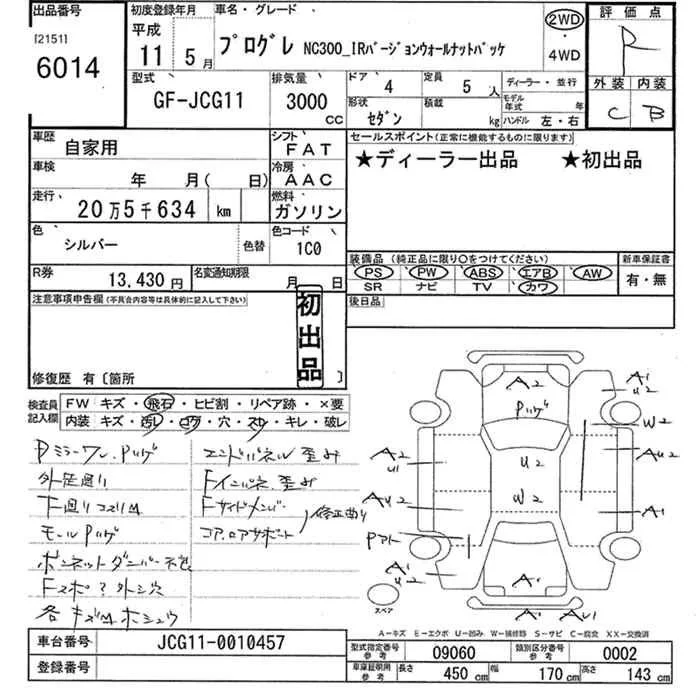 出品番号
[2151]
6014
初度登録年月
平成
11年 5月
車名・グレード
プログレ NC300_IRバージョンウォールナットパッケ
2WD
・
4WD
評価点
R
外装 内装
C B
型式
GF-JCG11
排気量
3000
CC
ドア
4
定員
5 人
形状
セダン
積載
kg
ディーラー・並行
モデル年式 年
ハンドル 左・右
車歴
自家用
シフト
FAT
車検
年 月( 日)
冷房
AAC
走行
20万5千634 km
燃料
ガソリン
色
シルバー
色替
色コード
1C0
R券
13,430円
名変通知期限
月 日
セールスポイント(正常に機能するものに限ります)
★ディーラー出品 ★初出品
装備品 (純正品に限り○をつけてください)
PS PW ABS エアB AW
SR ナビ TV カワ
新車保証書
有・無
後日品
注意事項申告欄(不具合内容等は具体的に記入して下さい)
初出品
修復歴 有〔箇所 〕
検査員記入欄
FW キズ・飛石・ヒビ割・リペア跡・×要
内装 キズ・汚レ・コゲ・穴・スレ・キレ・破レ
Pミラーワレ、Pハゲ
外足廻り
下廻りコスリ
モールPハゲ
ボンネットダンパー不良
各キズ ホシュウ
エンドパネル歪み
Fインパネ歪み
Fサイドメンバー
コアロアサポート
修正曲り
A2
Pハゲ
A1
U2
W2
A2
U1
U2
AU2
AU2
W2
A1
Pアト
A1
U2
A1
A1
AU1
スペア
A－キズ E－エクボ U－凹み W－補修跡 S－サビ C－腐食 XX－交換済
車台番号
JCG11-0010457
登録番号
型式指定番号
参考
09060
類別区分番号
参考
0002
車庫証明用
参考
長さ
450 cm
幅
170 cm
高さ
143 cm